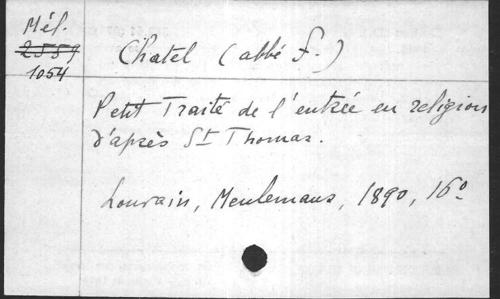 Mél.
2559
1054
Chatel (abbé F.)
Petit Traité de l'entrée en religion
d'après St Thomas.
Louvain, Meulemans, 1890, 16º